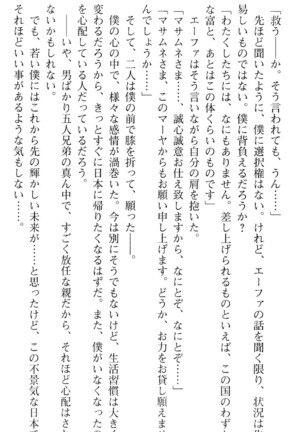 「救う――か。そう言われても、うん……」
先ほど聞いたように、僕に選択権はない。けれど、エーファの話を聞く限り、状況は生
易しいものではない。僕に背負えるだろうか？
「わたくしたちには、なにもありません。差し上げられるものといえば、この国のわずか
な富と、あとはこの体くらいのものです」
エーファはそう言いながら自分の肩を抱いた。
「マサムネさま……、誠心誠意お仕え致しますから、なにとぞ、なにとぞ……」
「マサムネさま、このマーヤからもお願い申し上げます。どうか、お力をお貸し願えませ
んでしょうか……」
そして、二人は僕の前で膝を折って、願った――。
僕の心の中で、様々な感情が渦巻いた。今は別にそうでもないけど、生活習慣は大きく
変わるだろうから、きっとすぐに日本に帰りたくなるはずだ。また、僕がいなくなったの
を心配している人だっているだろう。
――いや、男ばかり五人兄弟の真ん中で、すごく放任な親だから、それほど心配はされ
ないかもしれない。
でも、若い僕にはこれから先の輝かしい未来が……と思ったけど、この不景気な日本で
それほどいい事があるような気もしない……。